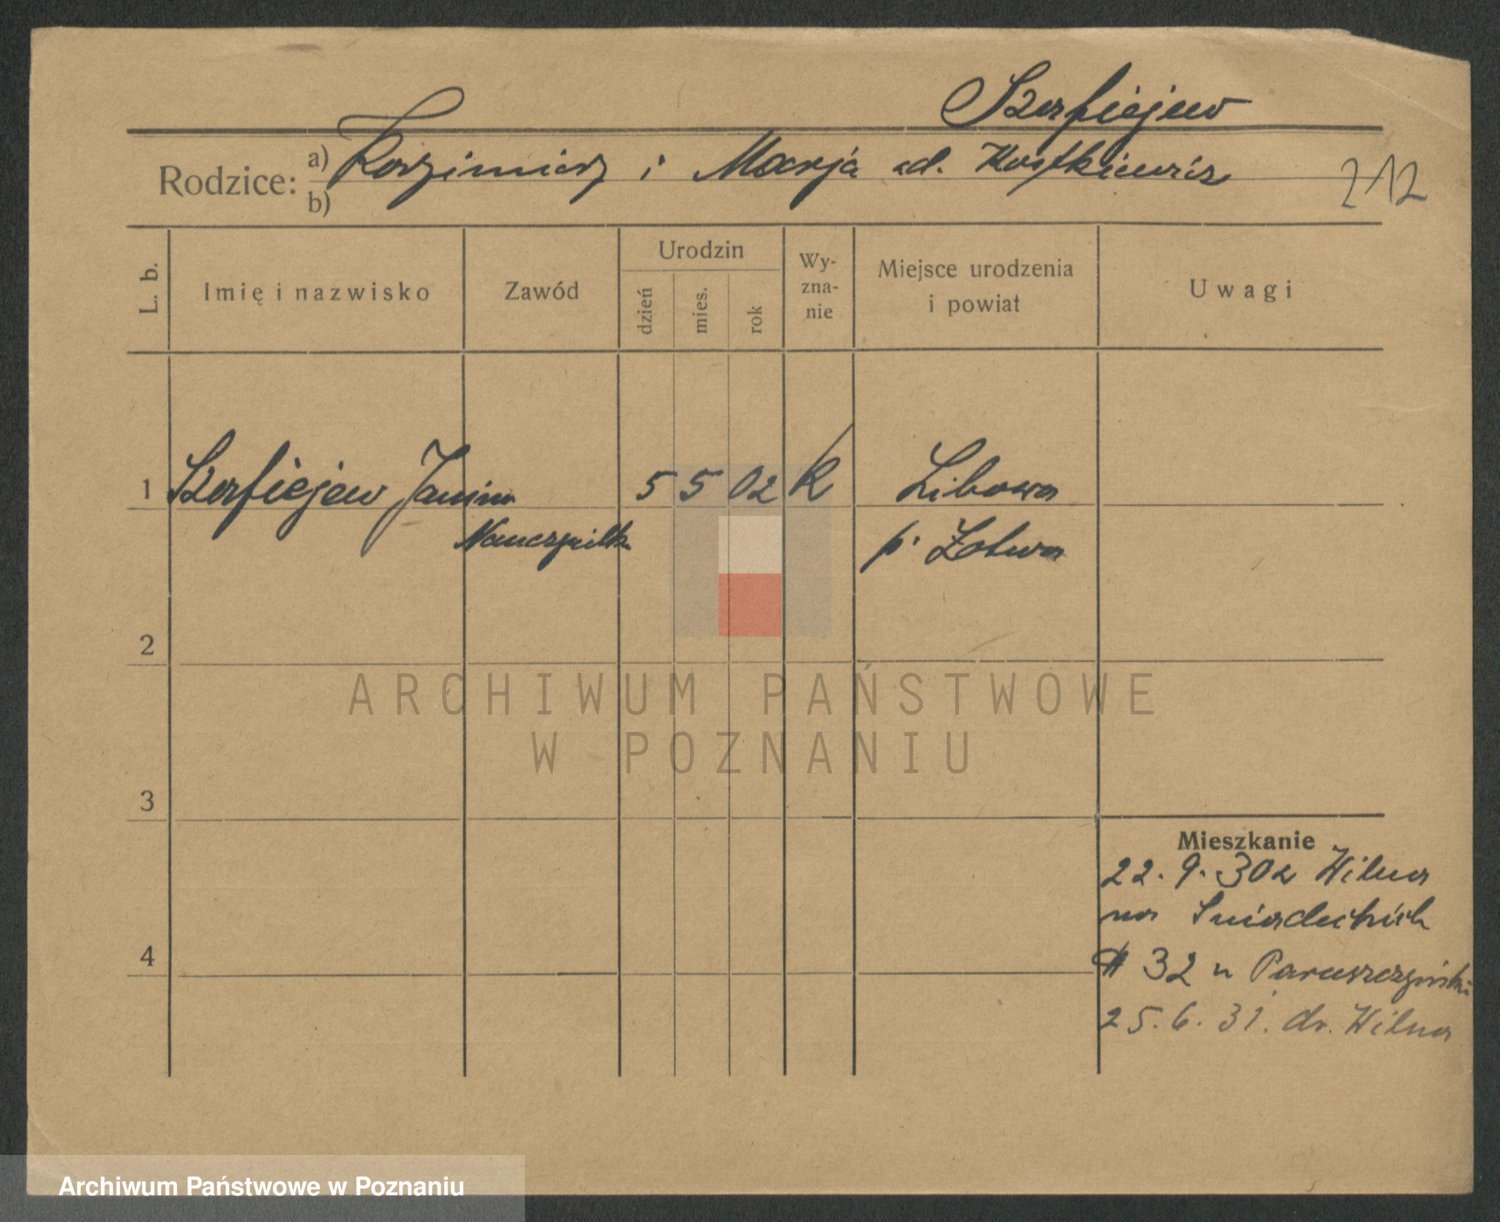 Szerfiejew
Rodzice: a) Kazimierz i Marja ad. Kostkiewicz
b)
212
L. b.
Imię i nazwisko
Zawód
Urodzin
dzień
mies.
rok
Wy-
zna-
nie
Miejsce urodzenia
i powiat
Uwagi
1 Szerfiejew Janina 5 5 02 k Libawa
Nauczycielk p. Łotwa
2
3
4
Mieszkanie
22. 9. 30 z Wilna
na Śniadeckich
32 u
25. 6. 31. do Wilna
ARCHIWUM PAŃSTWOWE
W POZNANIU
Archiwum Państwowe w Poznaniu